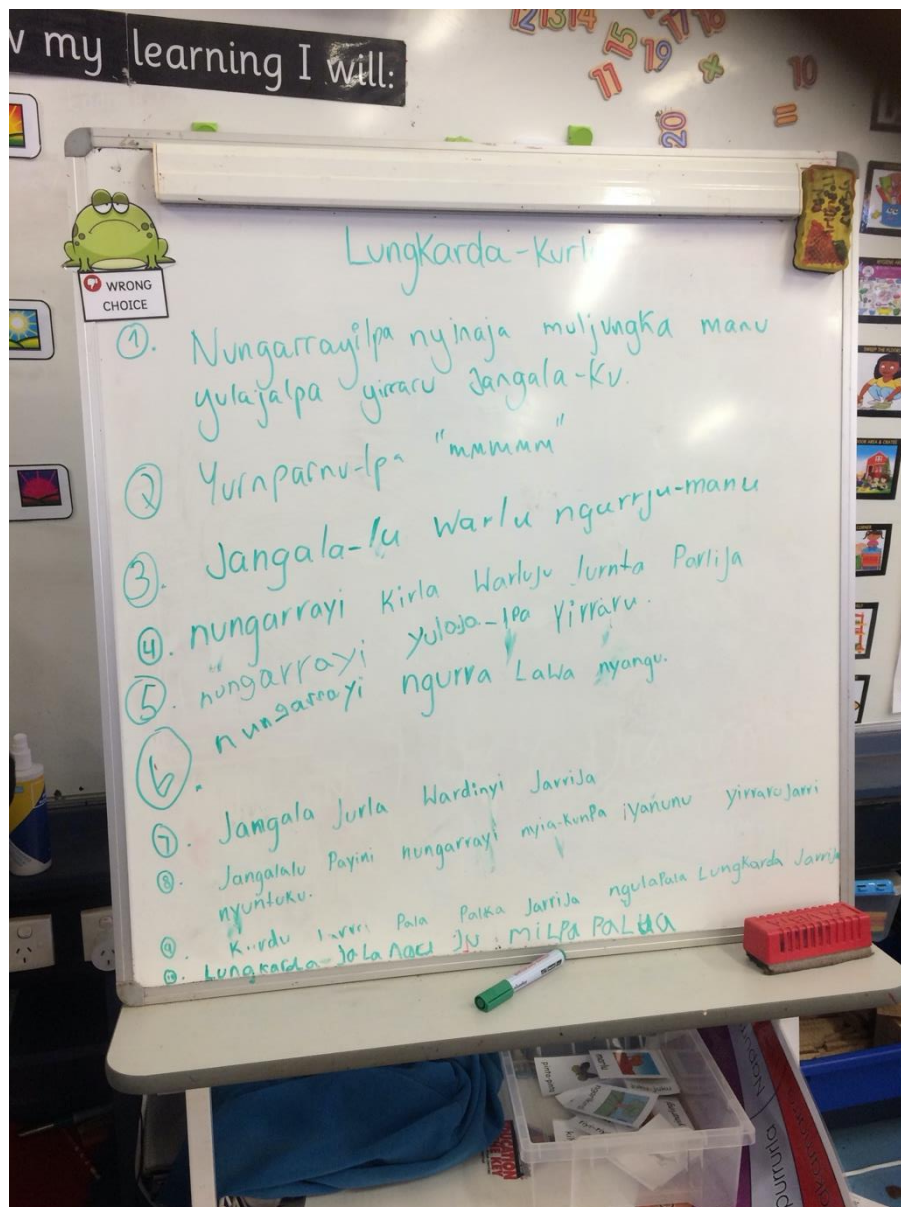 w my learning I will:
12 13 14
15
19
11
10
20
WRONG
CHOICE
Lungkarda-kurl
1. Nungarrayilpa nyinaja muljungka manu
yulajalpa yirraru Jangala-ku.
2 Yurnparnu-lpa "mmmmm"
3. Jangala-lu warlu ngurrju-manu
4. nungarrayi kirla warluju Jurnta Parlija
5. nungarrayi yulaja-lpa Yirraru.
6. nungarrayi ngurra Lawa nyangu.
7. Jangala Jurla Wardinyi Jarrija
8. Jangalalu Payini nungarrayi nyia-kunpa iyanunu yirraru Jarri
nyuntuku.
9. Kurdu Pala Palka Jarrija ngulaPala Lungkarda Jarrija
10. Lungkarda-Jalangu Ju MiLPa